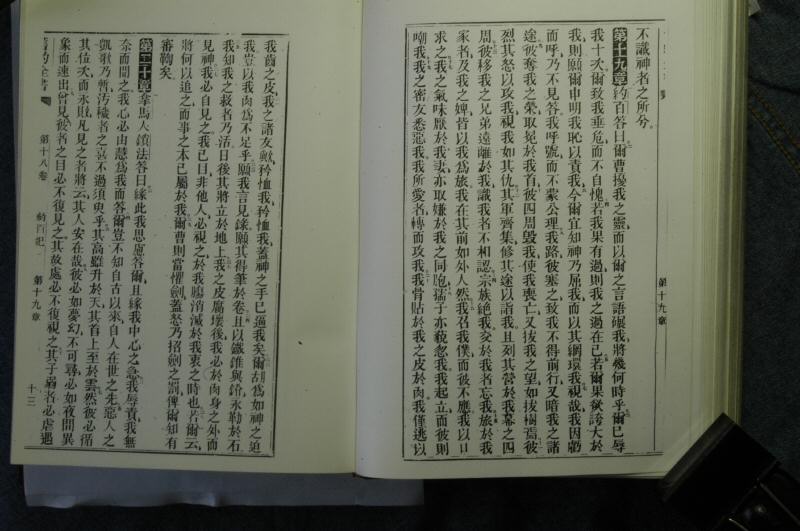 不識神者之所兮
第十九章約百答曰爾曹擾我之靈而以爾之言語碾我將幾何時乎爾已辱
我十次爾致我垂危而不自愧若我果有過則我之過在己若爾果欲誇大於
我則願爾申明我恥以責我今爾宜知神乃屈我而以其網環我視哉我因虧
而呼乃不見答我呼號而不蒙公理我路彼塞之致我不得前行又暗我之諸
途彼奪我之榮取冕於我首彼四周毀我使我喪亡又拔我之望如拔樹焉彼
烈其怒以攻我視我如其仇其軍齊集修其途以詣我且列其營於我幕之四
周彼移我之兄弟遠離於我識我者不相認宗族絕我交於我者忘我旅於我
家者及我之婢皆以我為旅我在其前如外人然我召我僕而彼不應我以口
求之我之氣味厭於我妻亦取嫌於我之同胞孺子亦藐忽我我起立而彼則
嘲我我之密友悉惡我我所愛者轉而攻我我骨貼於我之皮於肉我僅逃以
第十九章
我齒之皮我之諸友歟矜恤我矜恤我蓋神之手已逼我矣爾胡為如神之迫
我豈以我肉為不足乎願我言見錄願其得筆於卷且以鐵錐與鉛永勒於石
我知我之救者乃活日後其將立於地上我之皮腐壞後我必於肉身之外而
見神我必自見之我己目非他人必視之於我臟消滅於我衷之時也若爾云
將何以追之而事之本已屬於我爾曹則當懼劍蓋怒乃招劍之罰俾爾知有
審鞫矣
第二十章拿馬人鎖法答曰緣此我思應答爾且緣我中心之急我辱責我無
奈而聞之我心必由慧為我而答爾豈不知自古以來自人在世之先惡人之
凱歌乃暫污穢者之喜不過須臾乎其高雖升於天其首上至於雲然彼必循
其位次而永敗凡見之者將云其人安在哉彼必如夢幻不可尋必如夜間異
象而速出曾見彼者之目必不復見之其故處必不復視之其子弱者必虐遇
舊約全書
第十八卷
約百記
第十九章
十三